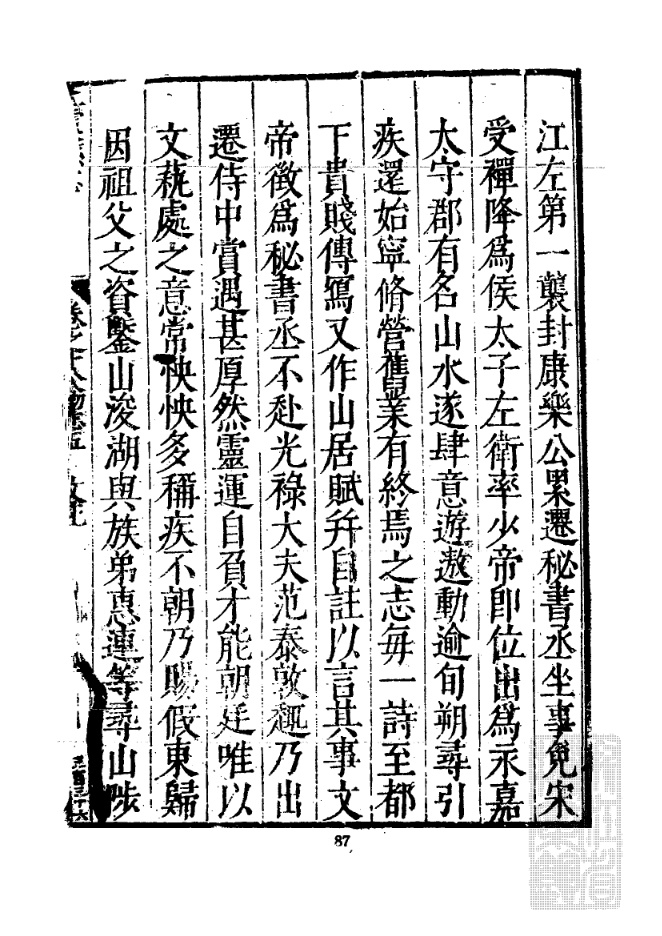 江左第一襲封康樂公累遷秘書丞坐事免宋
受禪降爲侯太子左衛率少帝卽位出爲永嘉
太守郡有名山水遂肆意遊遨動逾旬朔尋引
疾還始寧脩營舊業有終焉之志每一詩至都
下貴賤傳寫又作山居賦幷自註以言其事文
帝徵爲秘書丞不赴光祿大夫范泰敦趣乃出
遷侍中賞遇甚厚然靈運自負才能朝廷唯以
文蓺處之意常怏怏多稱疾不朝乃賜假東歸
因祖父之資鑿山浚湖與族弟惠連等尋山陟
87